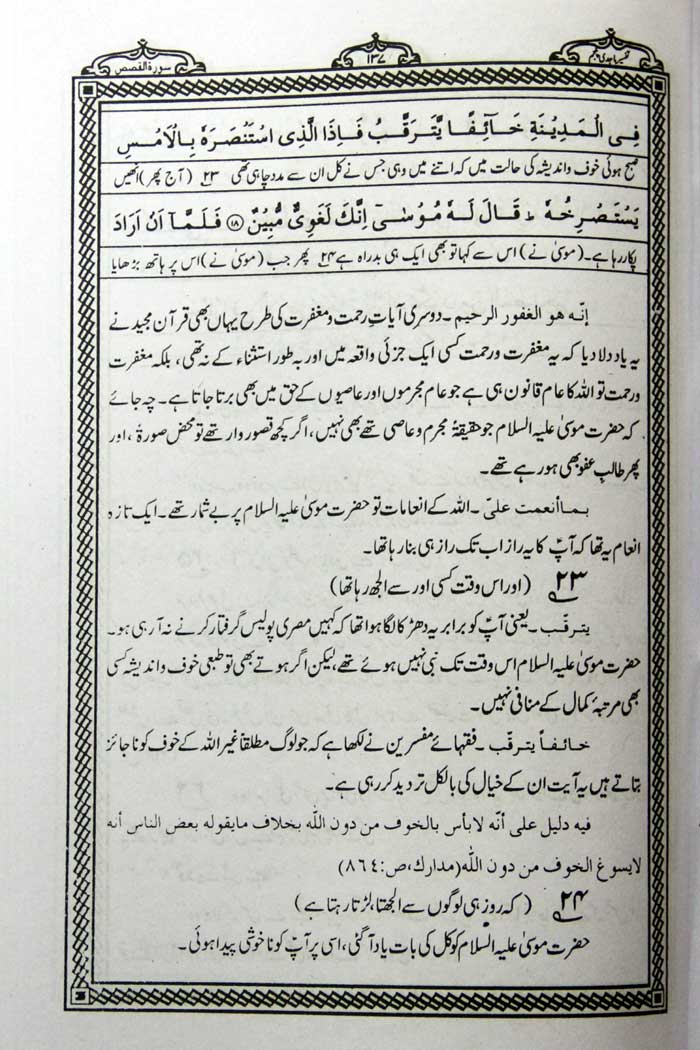 تفسیر ماجدی پنجم
۱۳۷
سورۃ القصص
فِی الْمَدِیْنَةِ خَآئِفًا یَّتَرَقَّبُ فَاِذَا الَّذِی اسْتَنْصَرَهٗ بِالْاَمْسِ
صبح ہوئی خوف و اندیشہ کی حالت میں کہ اتنے میں وہی جس نے کل ان سے مدد چاہی تھی ۲۳ (آج پھر) انھیں
یَسْتَصْرِخُهٗ ؕ قَالَ لَهٗ مُوْسٰۤی اِنَّكَ لَغَوِیٌّ مُّبِیْنٌ ﴿۱۸﴾ فَلَمَّاۤ اَنْ اَرَادَ
پکار رہا ہے۔ (موسیٰ نے) اس سے کہا تو بھی ایک ہی بدراہ ہے ۲۴ پھر جب (موسیٰ نے) اس پر ہاتھ بڑھایا
إنّه هو الغفور الرحیم۔ دوسری آیاتِ رحمت و مغفرت کی طرح یہاں بھی قرآن مجید نے
یہ یاد دلا دیا کہ یہ مغفرت و رحمت کسی ایک جزئی واقعہ میں اور بہ طور استثناء کے نہ تھی، بلکہ مغفرت
و رحمت تو اللہ کا عام قانون ہی ہے جو عام مجرموں اور عاصیوں کے حق میں بھی برتا جاتا ہے۔ چہ جائے
کہ حضرت موسیٰ علیہ السلام جو حقیقۃً مجرم و عاصی تھے بھی نہیں، اگر کچھ قصور وار تھے تو محض صورۃً، اور
پھر طالبِ عفو بھی ہو رہے تھے۔
بماأنعمت علیّ۔ اللہ کے انعامات تو حضرت موسیٰ علیہ السلام پر بے شمار تھے۔ ایک تازہ
انعام یہ تھا کہ آپؑ کا یہ راز اب تک راز ہی بنا رہا تھا۔
۲۳ (اور اس وقت کسی اور سے الجھ رہا تھا)
یترقّب۔ یعنی آپؑ کو برابر یہ دھڑکا لگا ہوا تھا کہ کہیں مصری پولیس گرفتار کرنے نہ آ رہی ہو۔
حضرت موسیٰ علیہ السلام اس وقت تک نبی نہیں ہوئے تھے، لیکن اگر ہوتے بھی تو طبعی خوف و اندیشہ کسی
بھی مرتبۂ کمال کے منافی نہیں۔
خائفاً یترقّب۔ فقہائے مفسرین نے لکھا ہے کہ جو لوگ مطلقاً غیر اللہ کے خوف کو ناجائز
بتاتے ہیں یہ آیت ان کے خیال کی بالکل تردید کر رہی ہے۔
فیه دلیل علی أنّه لابأس بالخوف من دون اللّٰه بخلاف مایقوله بعض الناس أنه
لایسوغ الخوف من دون اللّٰه (مدارك، ص:۸۶۴)
۲۴ (کہ روز ہی لوگوں سے الجھتا، لڑتا رہتا ہے)
حضرت موسیٰ علیہ السلام کو کل کی بات یاد آ گئی، اسی پر آپؑ کو ناخوشی پیدا ہوئی۔